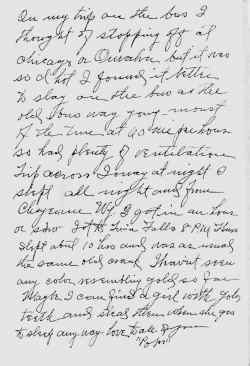 On my trip on the bus I
thought of stopping off at
Chicago or Omaha but it was
so hot I found it better
to stay on the bus as the
old bus was going most
of the time at 60 mi per hour
so had plenty of ventilation
trip across Iowa at night I
slept all night and from
Cheyenne Wy I got in an hour
or so Got to Twin Falls 8 PM
slept about 10 hrs and was as usual
the same old I havent seen
any color resembling gold so far
Maybe I can find a girl with gold
teeth and steal them when she goes
to sleep any way love to all
"Pops"